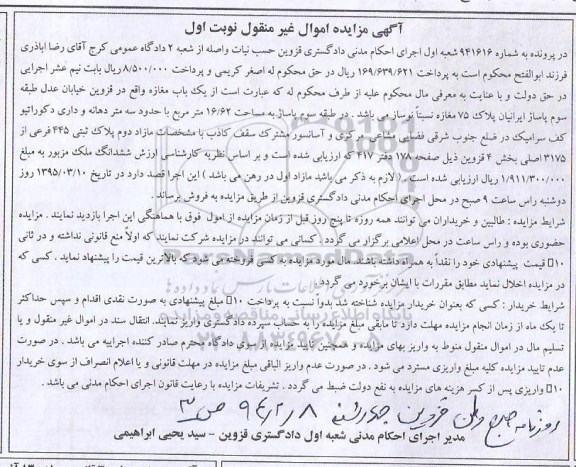 آگهی مزایده اموال غیر منقول نوبت اول
در پرونده به شماره ۹۴۱۶۱۶ شعبه اول اجرای احکام مدنی دادگستری قزوین حسب نیات واصله از شعبه ۲ دادگاه عمومی کرج آقای رضا اباذری
فرزند ابوالفتح محکوم است به پرداخت ۱۶۹/۶۳۹/۶۲۱ ریال در حق محکوم له اصغر کریمی و پرداخت ۸/۵۰۰/۰۰۰ ریال بابت نیم عشر اجرایی
در حق دولت و با عنایت به معرفی مال محکوم علیه از طرف محکوم له که عبارت است از یک باب مغازه واقع در قزوین خیابان عدل طبقه
سوم پاساژ ایرانیان پلاک ۷۵ مغازه نسبتاً نوساز می باشد . در طبقه سوم پاساژ به مساحت ۱۶/۶۲ متر مربع با حدود سه متر دهانه و داری دکوراتیو
کف سرامیک در ضلع جنوب شرقی فضای مشاعی مرکزی و آسانسور مشترک سقف کاذب با مشخصات مازاد دوم پلاک ثبتی ۴۴۵ فرعی از
۳۱۷۵ اصلی بخش ۴ قزوین ذیل صفحه ۱۷۸ دفتر ۴۱۷ که ارزیابی شده است و بر اساس نظریه کارشناسی ارزش ششدانگ ملک مزبور به مبلغ
۱/۹۱۱/۳۰۰/۰۰۰ ریال ارزیابی شده است . ( لازم به ذکر می باشد مازاد اول در رهن می باشد ) این اجرا قصد دارد در تاریخ ۱۳۹۵/۰۳/۱۰ روز
دوشنبه راس ساعت ۹ صبح در محل اجرای احکام مدنی دادگستری قزوین از طریق مزایده به فروش برساند .
شرایط مزایده : طالبین و خریداران می توانند همه روزه تا پنج روز قبل از زمان مزایده از اموال فوق با هماهنگی این اجرا بازدید نمایند . مزایده
حضوری بوده و راس ساعت در محل اعلامی برگزار می گردد . کسانی می توانند در مزایده شرکت نمایند که اولاً منع قانونی نداشته و در ثانی
۱۰٪ قیمت پیشنهادی خود را نقداً به همراه داشته باشند. مال مورد مزایده به کسی فروخته می شود که بالاترین قیمت را پیشنهاد نماید . کسی که
در مزایده اخلال نماید مطابق مقررات با ایشان برخورد می گردد .
شرایط خریدار : کسی که بعنوان خریدار مزایده شناخته شد بدواً نسبت به پرداخت ۱۰٪ مبلغ پیشنهادی به صورت نقدی اقدام و سپس حداکثر
تا یک ماه از زمان انجام مزایده مهلت دارد تا مابقی مبلغ مزایده را به حساب سپرده دادگستری واریز نمایند. انتقال سند در اموال غیر منقول و یا
تسلیم مال در اموال منقول منوط به واریز بهای مزایده و همچنین تایید مزایده از سوی دادگاه محترم صادر کننده اجراییه می باشد . در صورت
عدم تایید مزایده کلیه مبلغ واریزی مسترد می شود . در صورت عدم واریز الباقی مبلغ مزایده در مهلت قانونی و یا اعلام انصراف از سوی خریدار
۱۰٪ واریزی پس از کسر هزینه های مزایده به نفع دولت ضبط می گردد . تشریفات مزایده با رعایت قانون اجرای احکام مدنی می باشد .
روزنامه صبح قزوین چهارشنبه ۹۴/۲/۸ ص ۳
مدیر اجرای احکام مدنی شعبه اول دادگستری قزوین - سید یحیی ابراهیمی